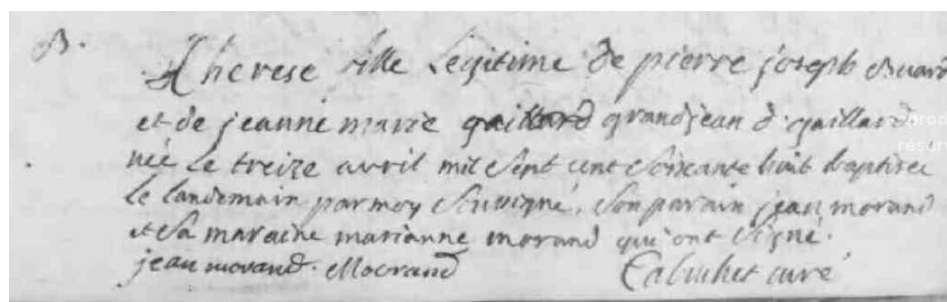 B.
Therese fille Legitime de pierre joseph Buard
et de jeanne marie gaillard grandjean d. gaillard
née le treize avril mil sept cent soixante huit baptisée
le landemain par moy soussigné, son parain jean morand
et sa maraine marianne morand qui ont signé.
jean morand. Morand curé